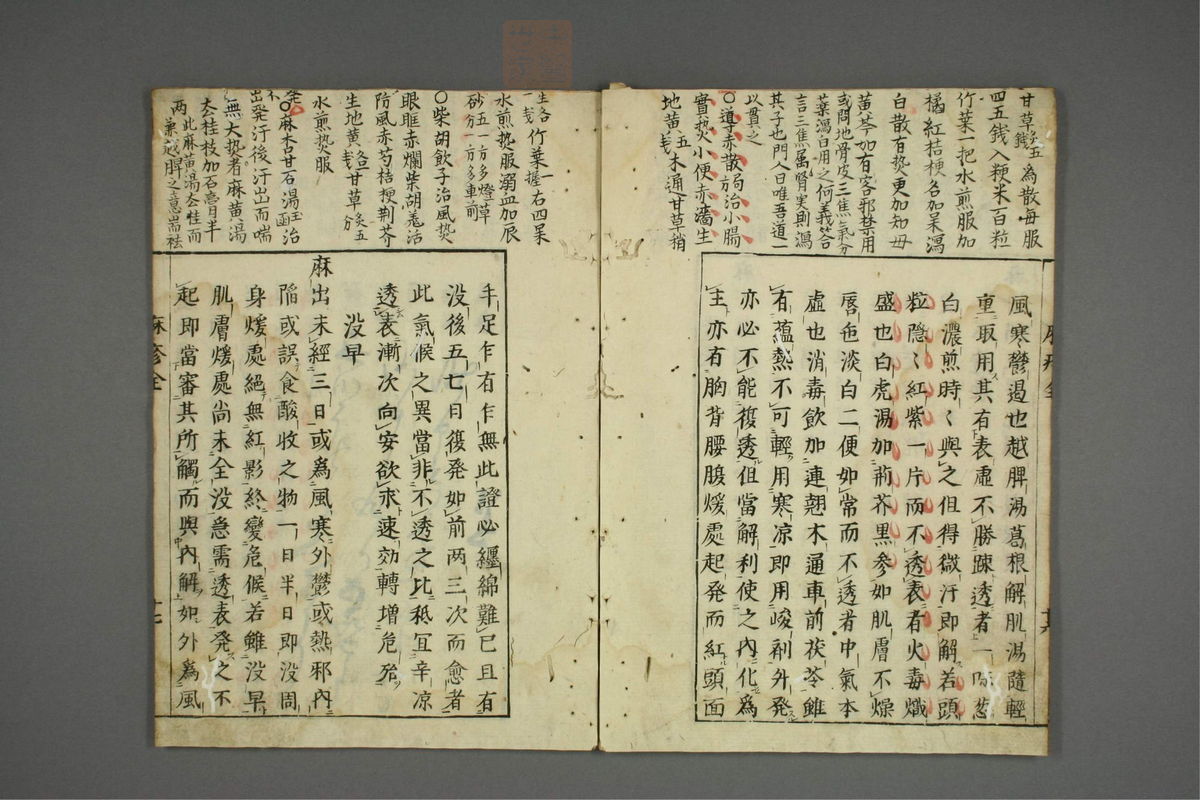 甘草五錢為散每服
四五錢入粳米百粒
竹葉一把水煎服加
橘紅桔梗各加杲瀉
白散百热更加知毋
黄芩加有客邪禁用
或問地骨皮三焦氣分
葉瀉白用之何義答
言三焦属腎実則瀉
其子也門人曰唯吾道一
以貫之
○導赤散荊治小腸
實热小便赤濇生
地黄五戋木通甘草稍
風寒鬱遏也越脾湯葛根解肌湯隨輕
重取用其有表虛不勝踈透者一味葱
白濃煎時〻與之但得微汗即解若頭
粒隐〻紅紫一片而不透表者火毒熾
盛也白虎湯加荊芥黑參如肌膚不燥
唇色淡白二便如常而不透者中氣本
虛也消毒飲加連翹木通車前茯苓雖
有蕴熱不可輕用寒凉即用峻剂外発
亦必不能復透但當解利使之内化爲
主亦有胸背腰腹煖處起発而紅頭面
生各一戋竹葉一握右四味
水煎热服溺血加辰
砂五分一方多燈草
一方多車前
○柴胡飲子治風热
眼眶赤爛柴胡羌活
防風赤芍桔梗荆芥
生地黄各一戋甘草炙五分
水煎热服
○麻杏甘石湯玉函治
出発汗後汗出而喘
無大热者麻黄湯
去桂枝加石膏半
两此麻黄湯去桂而
兼越脾之意耑祛
手足乍有乍無此證必纒綿難已且有
没後五七日復発如前两三次而愈者
此氣候之異當非不透之比秪宜辛凉
透表漸次向安欲求速効轉增危殆
没早
麻出未經三日或為風寒外鬱或熱邪內
陷或誤食酸收之物一日半日即没周
身煖處絕無紅影終變危候若雖没早
肌膚煖處尚未全没急需透表発之不
起即當審其所觸而與內解如外為風
麻疹全
十七